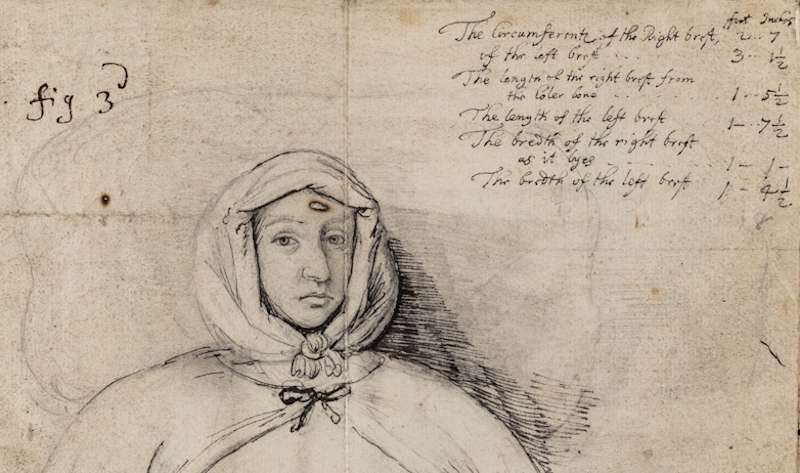 fig 3
foot Inches
The Circumferente of the Right brest, 2 .. 7
of the left brest . . . 3 .. 1½
The length of the right brest from
the coler bone . . . . 1 .. 5½
The length of the left brest 1 — 7½
The bredth of the right brest
as it lyes — . . . 1 - 1 -
The bredth of the left brest 1 - 4½